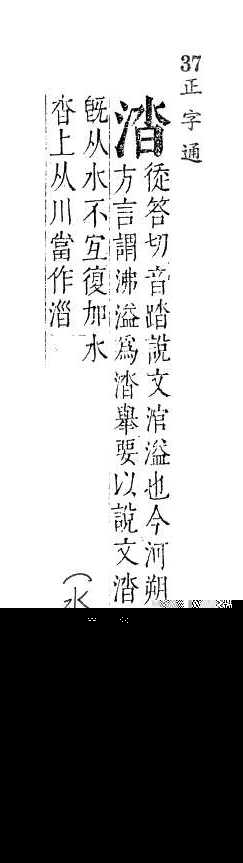 37正字通
涾徒答切音踏說文涫溢也今河朔
方言謂沸溢爲涾舉要以說文涾
旣从水不宐復加水
沓上从川當作㴞
（水